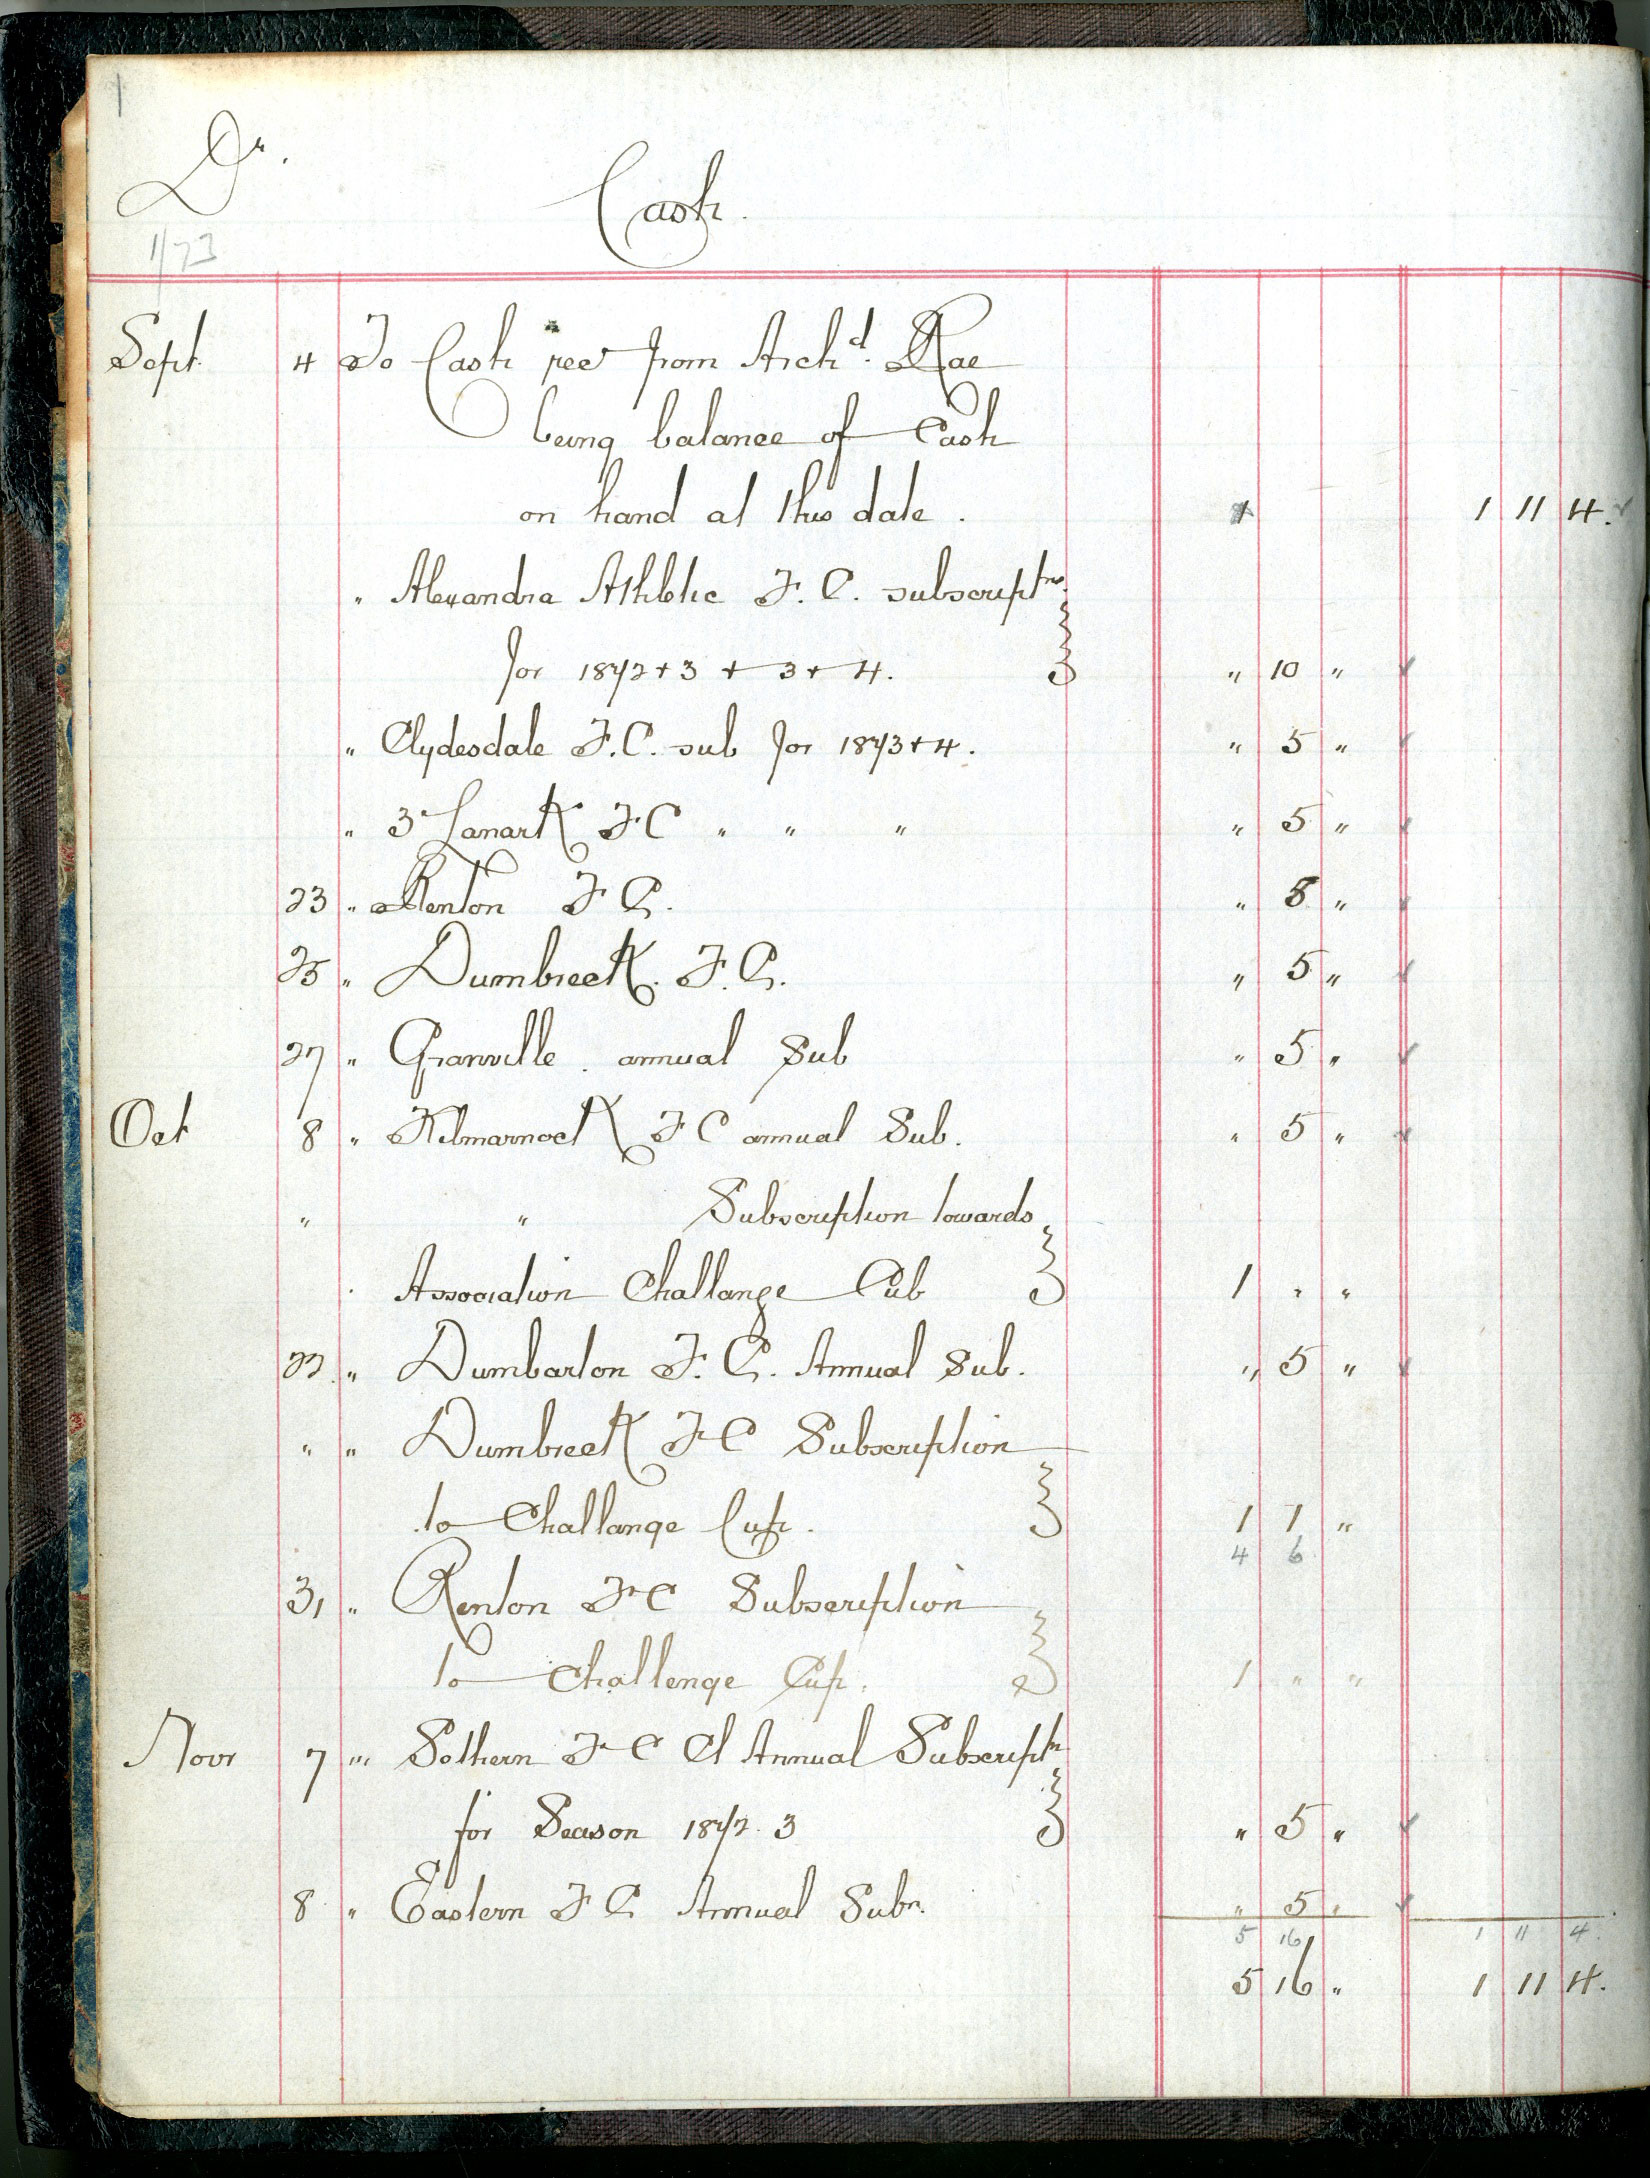 1
Dr.
Cash.
1/73
Sept 4 To Cash recd from Archd. Rae
being balance of Cash
on hand at this date. 1 11 4.
" Alexandra Athletic F. C. subscriptns
for 1872+3 + 3+4. " 10 "
" Clydesdale F.C. sub for 1873+4. " 5 "
" 3 Lanark F C " " " " 5 "
23 " Renton F C. " 5 "
25 " Dumbreck. F.C. " 5 "
27 " Granville. annual Sub " 5 "
Oct 8 " Kilmarnock F C annual Sub. " 5 "
" " Subscription towards
Association Challange Cub 1 " "
22 " Dumbarton F. C. Annual Sub. " 5 "
" " Dumbreck F C Subscription
to Challange Cup. 1 1 "
4 6
31 " Renton F C Subscription
to Challenge Cup. 1 " "
Novr 7 " Sothern F C Annual Subscriptn
for Season 1872.3 " 5 "
8 " Eastern F C Annual Subn. " 5 "
5 16 1 11 4.
5 16 " 1 11 4.